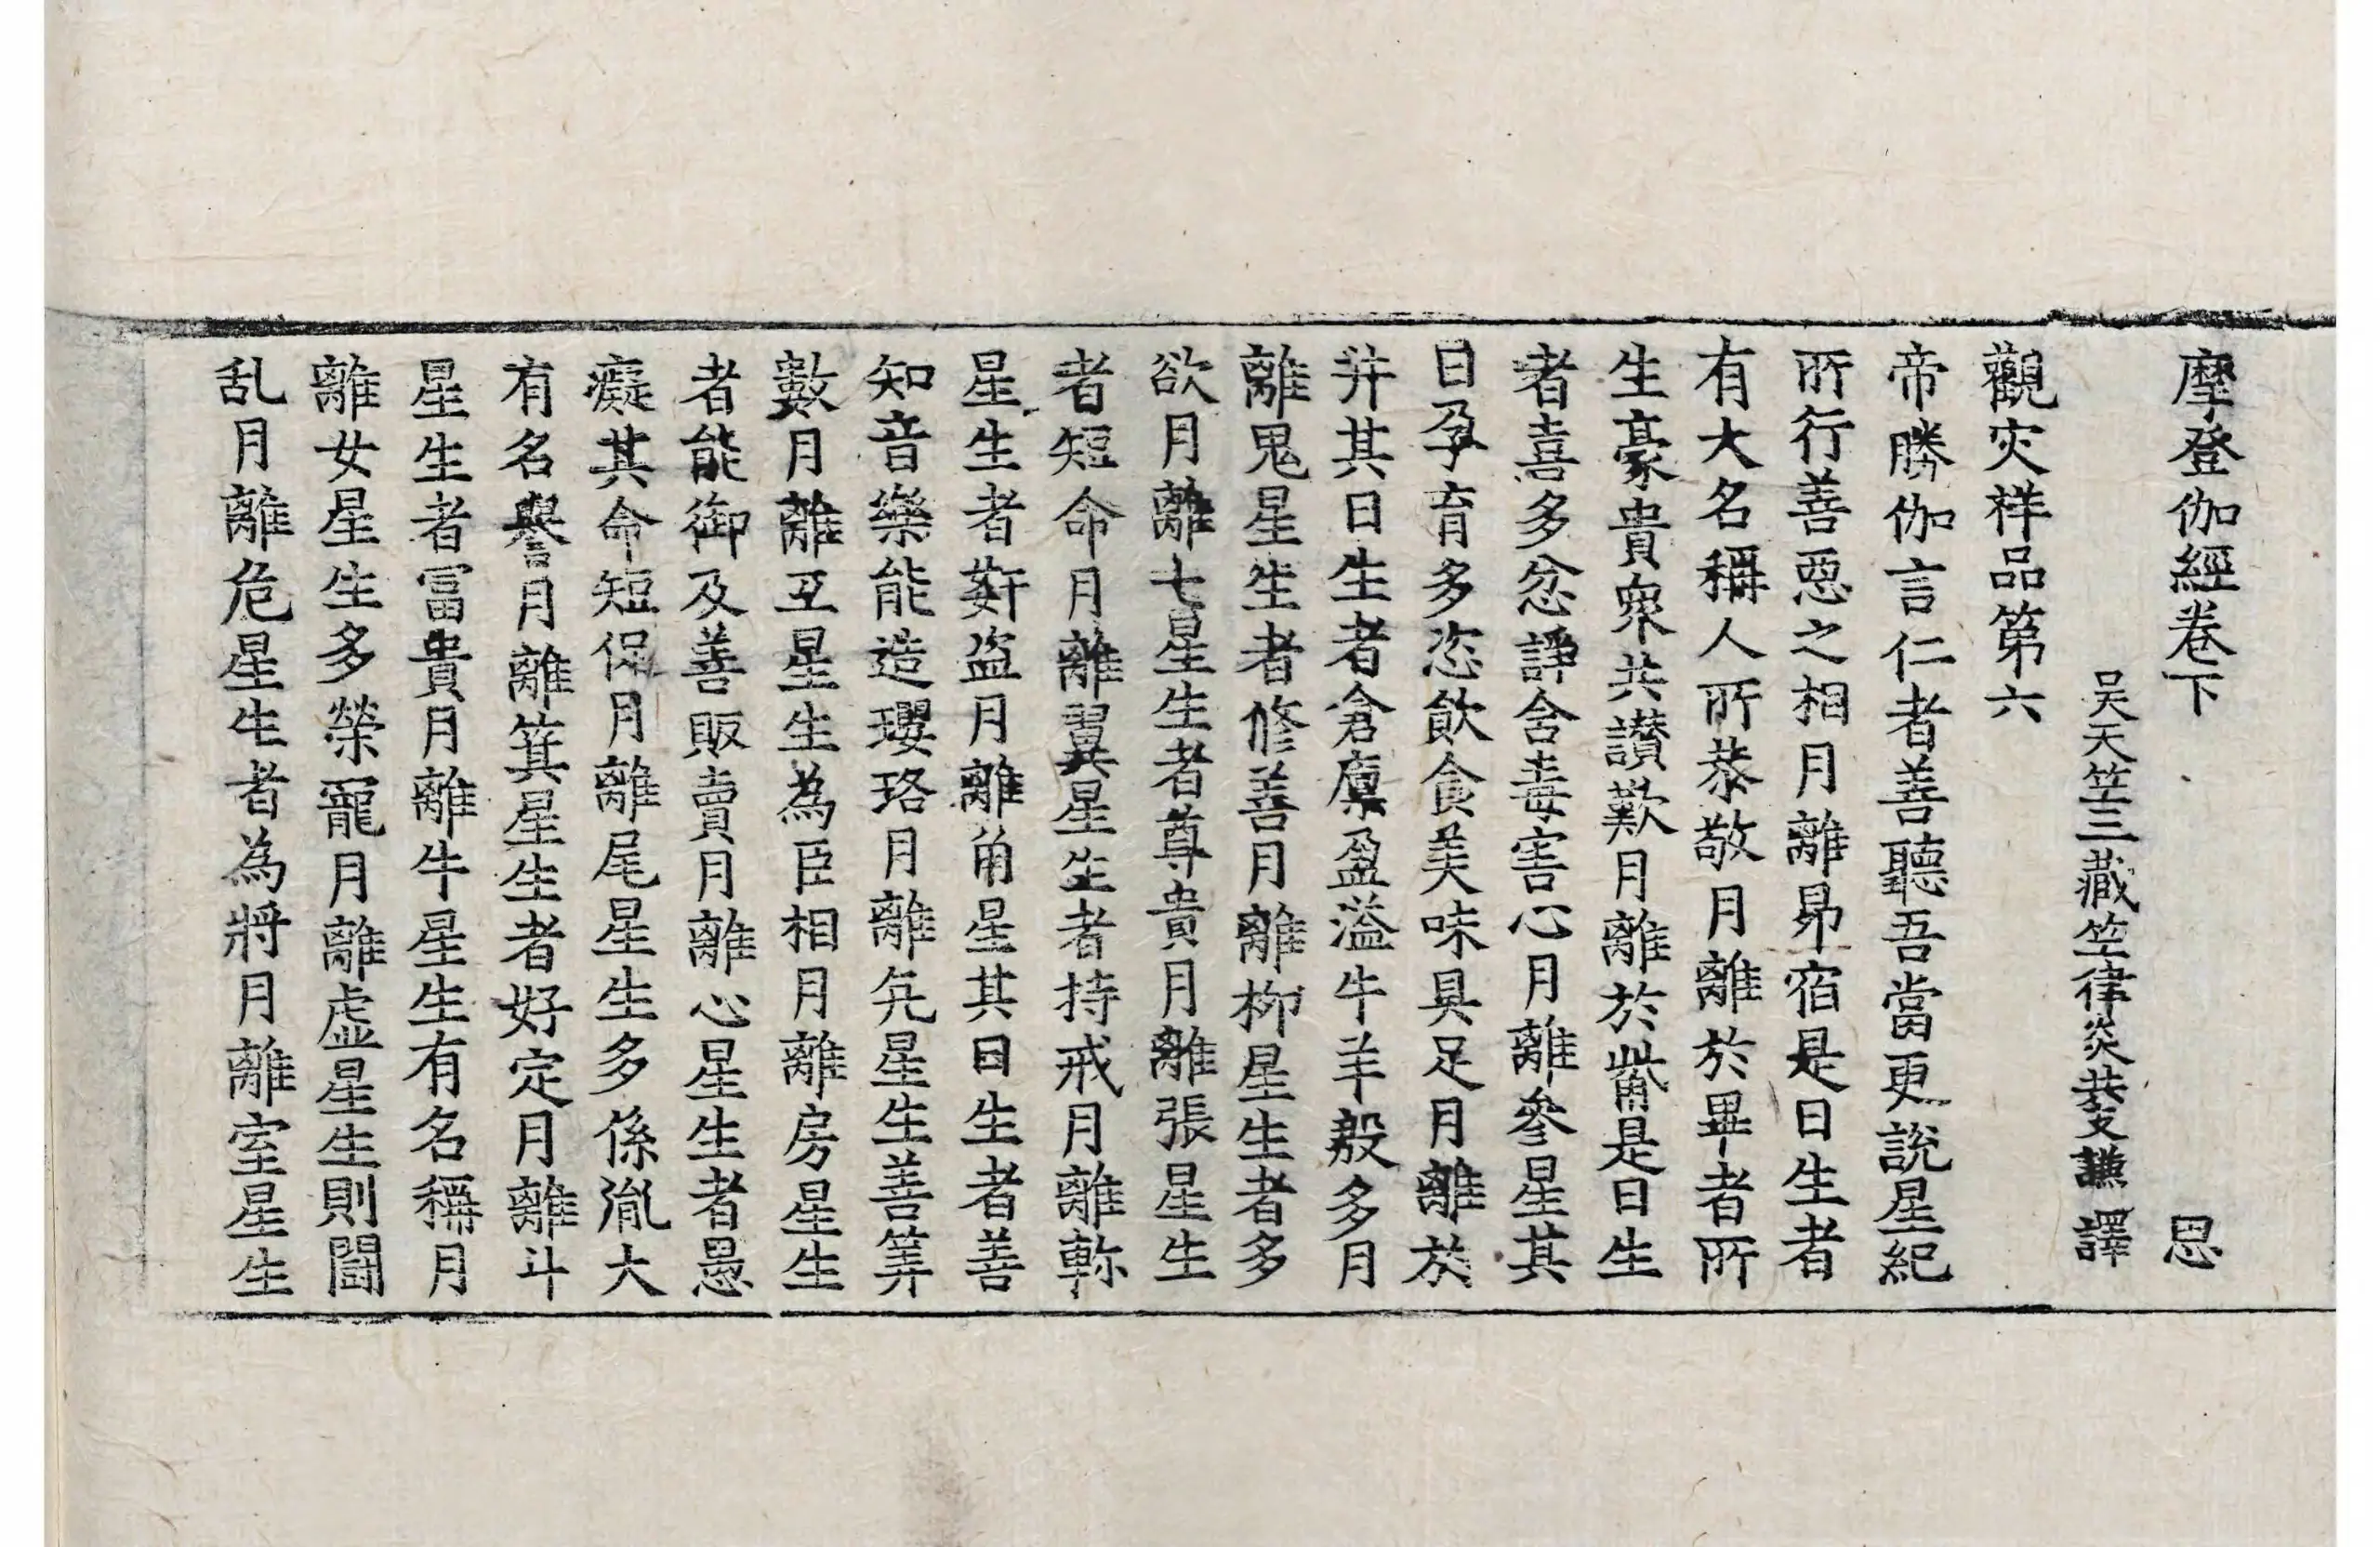 摩登伽經卷下 思
吴天竺三藏竺律炎共支謙譯
觀灾祥品第六
帝勝伽言仁者善聽吾當更說星紀
所行善惡之相月離昴宿是日生者
有大名稱人所恭敬月離於畢者所
生豪貴衆共讃歎月離於觜是日生
者喜多忿諍含毒害心月離參星其
日孕育多恣飲食美味具足月離於
井其日生者倉廩盈溢牛羊穀多月
離鬼星生者修善月離柳星生者多
欲月離七星生者尊貴月離張星生
者短命月離翼星生者持戒月離軫
星生者姧盗月離角星其日生者善
知音樂能造瓔珞月離亢星生善筭
數月離互星生為臣相月離房星生
者能御及善販賣月離心星生者愚
癡其命短促月離尾星生多係胤大
有名譽月離箕星生者好定月離斗
星生者冨貴月離牛星生有名稱月
離女星生多榮寵月離虚星生則闘
乱月離危星生者為將月離室星生